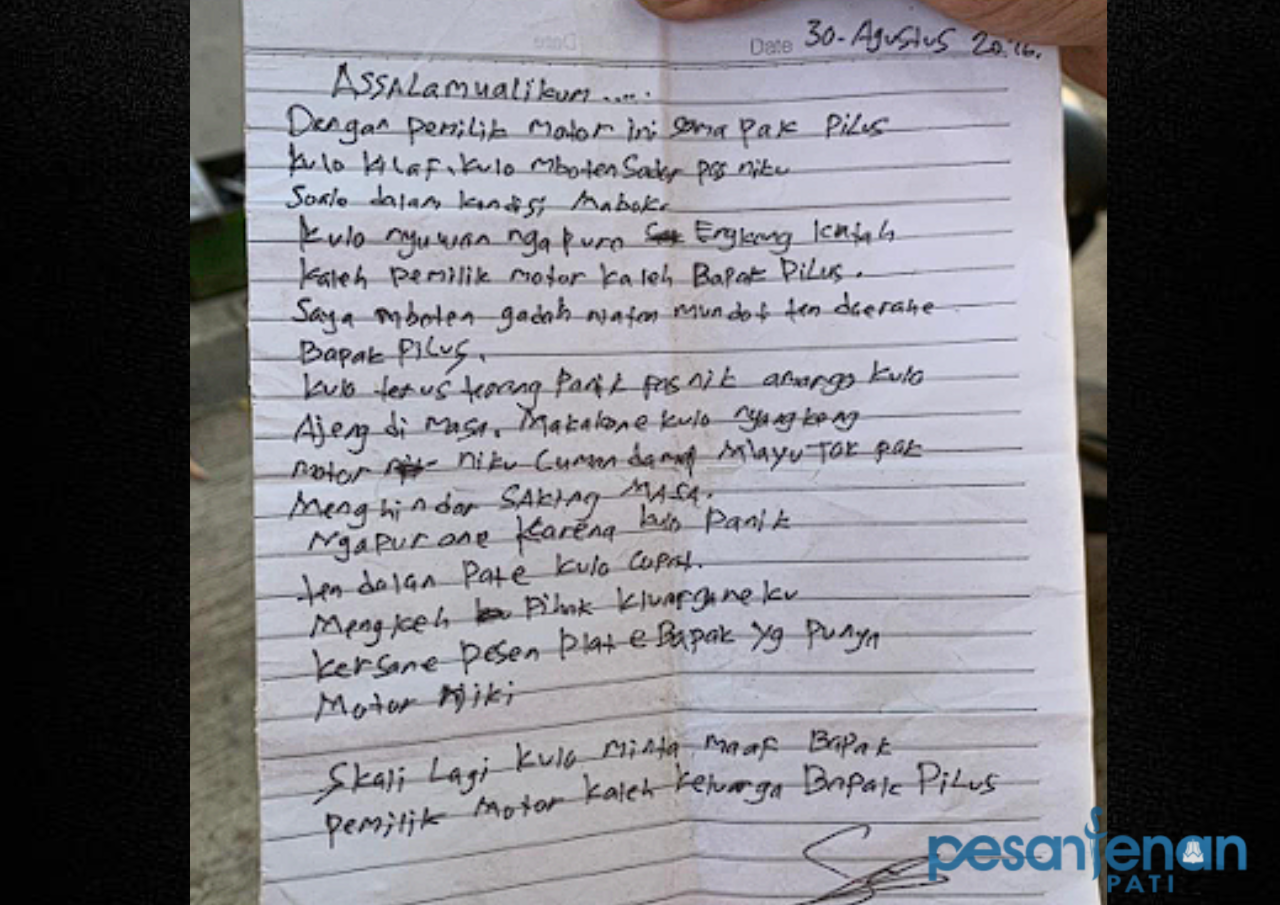 Date 30-Agustus 20.16.
ASSALamualikum .....
Dengan pemilik motor ini sama pak PiLus
Kulo KILAF. Kulo mboten Sadar pas niku
Soalo dalam kondisi Mabok.
Kulo nyuwun ngapuro Engkang
kaleh pemilik motor kaleh Bapak PiLus.
Saya mboten gadah niatan mundot ten daerahe
Bapak PiLus.
Kulo terus terang Panik pas nik amargo kulo
Ajeng di masa. Makalone kulo nyangkong
motor niku Cuman damel Mlayu Tok pak
Menghindar SAKING MASA.
Ngapurone Karena kulo Panik
ten dalan Pate kulo Copat.
Mengkeh Pihak Kluargane ku
kersane pesen plate Bapak yg Punya
Motor Niki
Skali Lagi kulo minta maaf Bapak
pemilik Motor kaleh keluarga Bapak PiLus
pesantenan
PATI